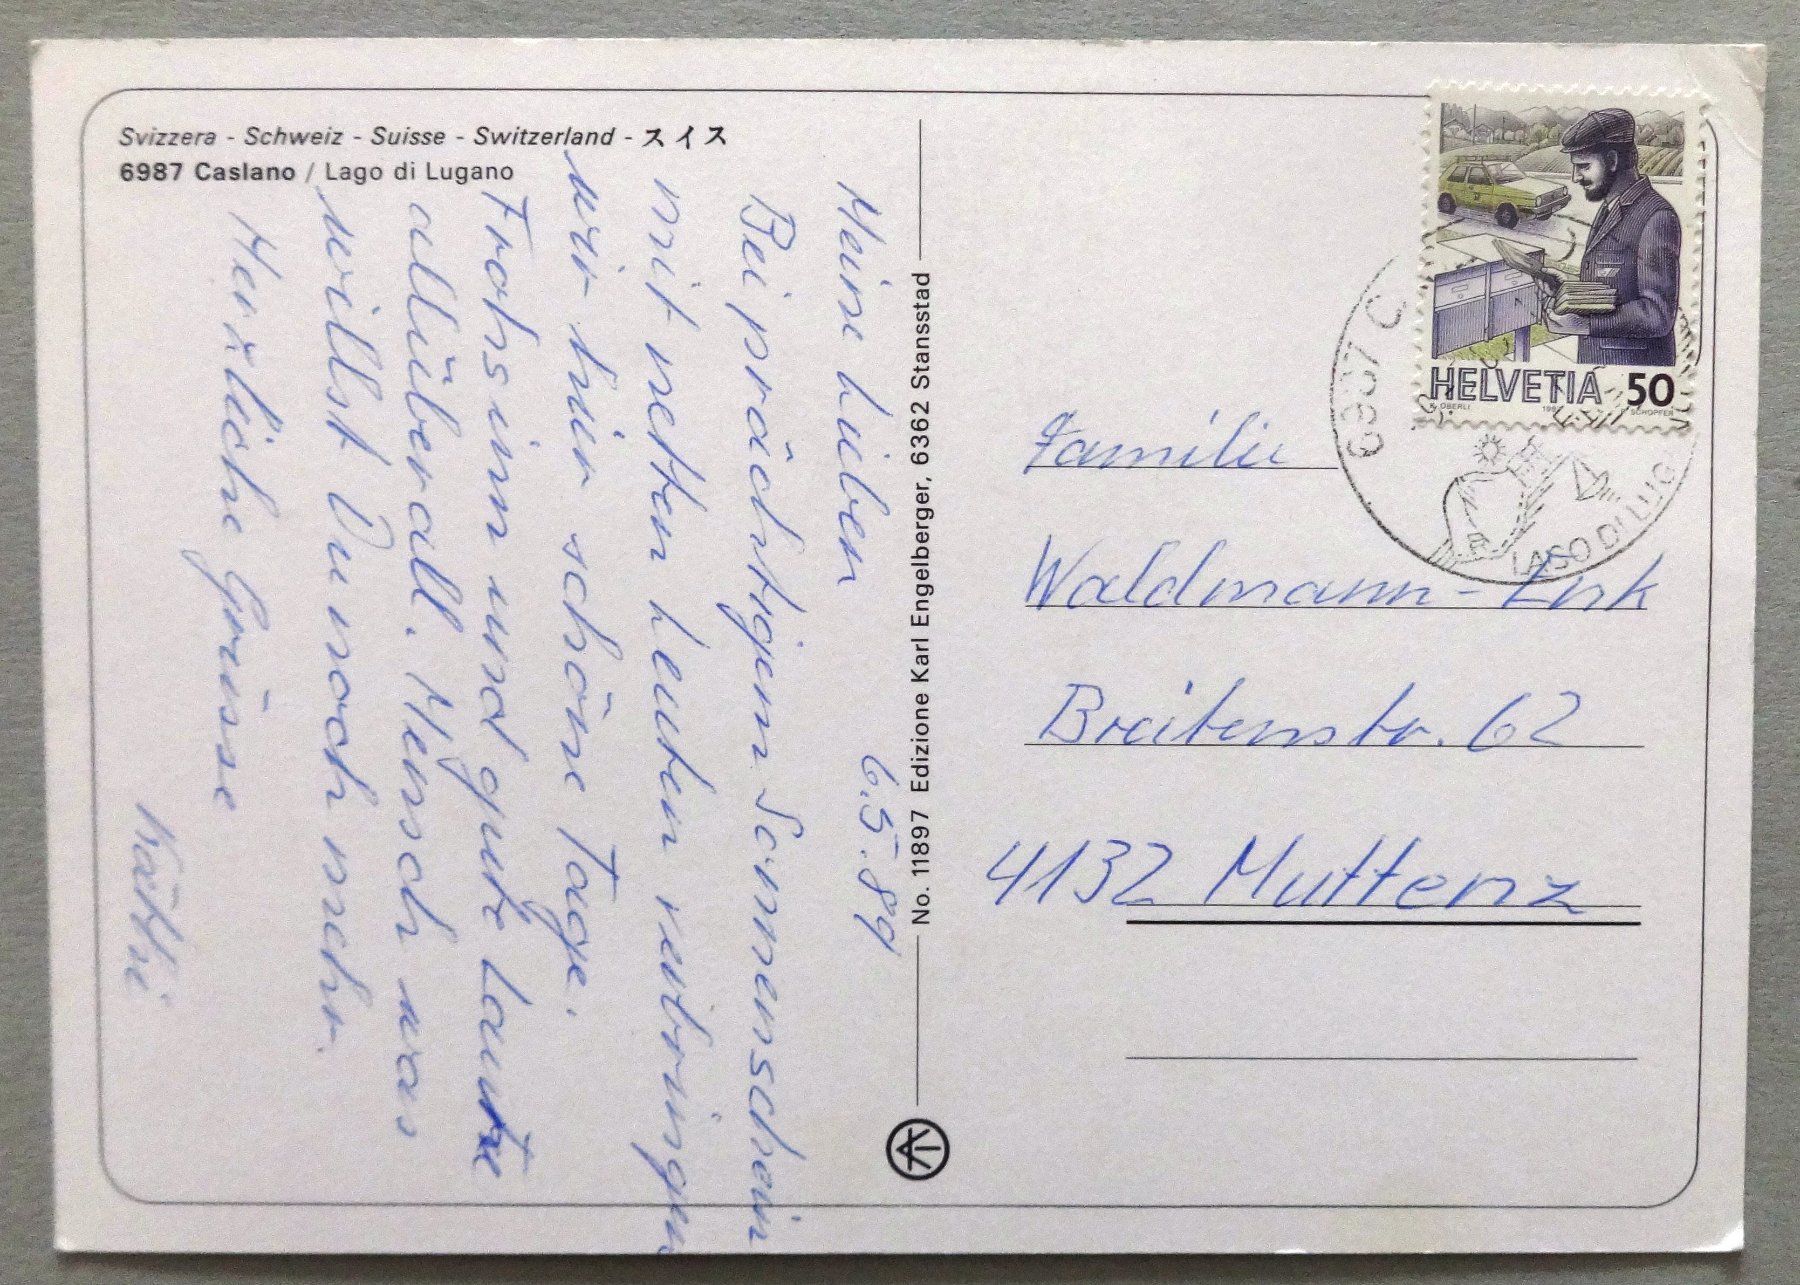 Svizzera - Schweiz - Suisse - Switzerland - スイス
6987 Caslano / Lago di Lugano
Meine Lieben
6.5.89
Bei prächtigem Sonnenschein
mit netten Leuten verbringen
wir hier schöne Tage.
Frohsinn und gute Laune
allüberall. Mensch was
willst Du noch mehr.
Herzliche Grüsse
Käthi
No. 11897 Edizione Karl Engelberger, 6362 Stansstad
HELVETIA 50
K. OBERLI
SCHOPFER
6987 C
LAGO DI LUG
Familie
Waldmann-Enk
Breitenstr. 62
4132 Muttenz